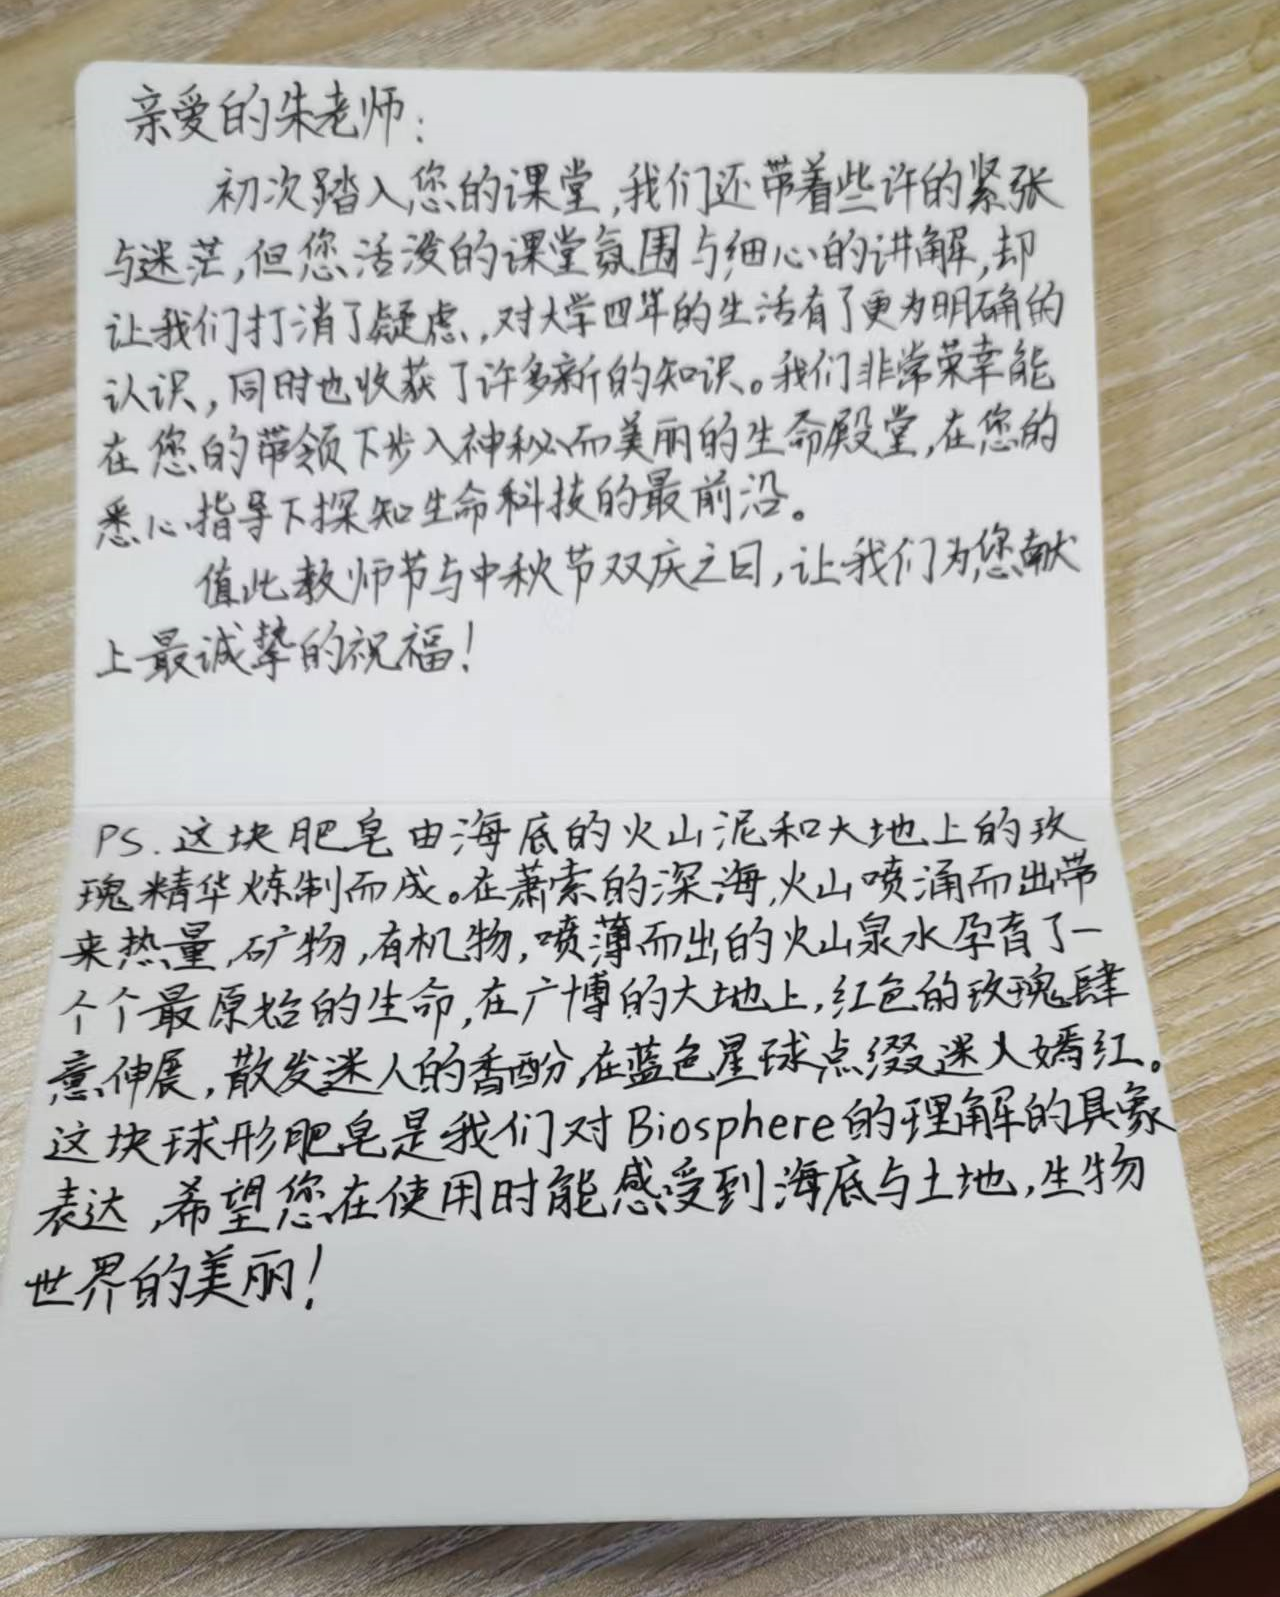 亲爱的朱老师：
初次踏入您的课堂，我们还带着些许的紧张
与迷茫，但您活泼的课堂氛围与细心的讲解，却
让我们打消了疑虑，对大学四年的生活有了更为明确的
认识，同时也收获了许多新的知识。我们非常荣幸能
在您的带领下步入神秘而美丽的生命殿堂，在您的
悉心指导下探知生命科技的最前沿。
值此教师节与中秋节双庆之日，让我们为您献
上最诚挚的祝福！
PS. 这块肥皂由海底的火山泥和大地上的玫
瑰精华炼制而成。在萧索的深海，火山喷涌而出带
来热量，矿物，有机物，喷薄而出的火山泉水孕育了一
个个最原始的生命，在广博的大地上，红色的玫瑰肆
意伸展，散发迷人的香酚，在蓝色星球点缀迷人嫣红。
这块球形肥皂是我们对Biosphere的理解的具象
表达，希望您在使用时能感受到海底与土地，生物
世界的美丽！